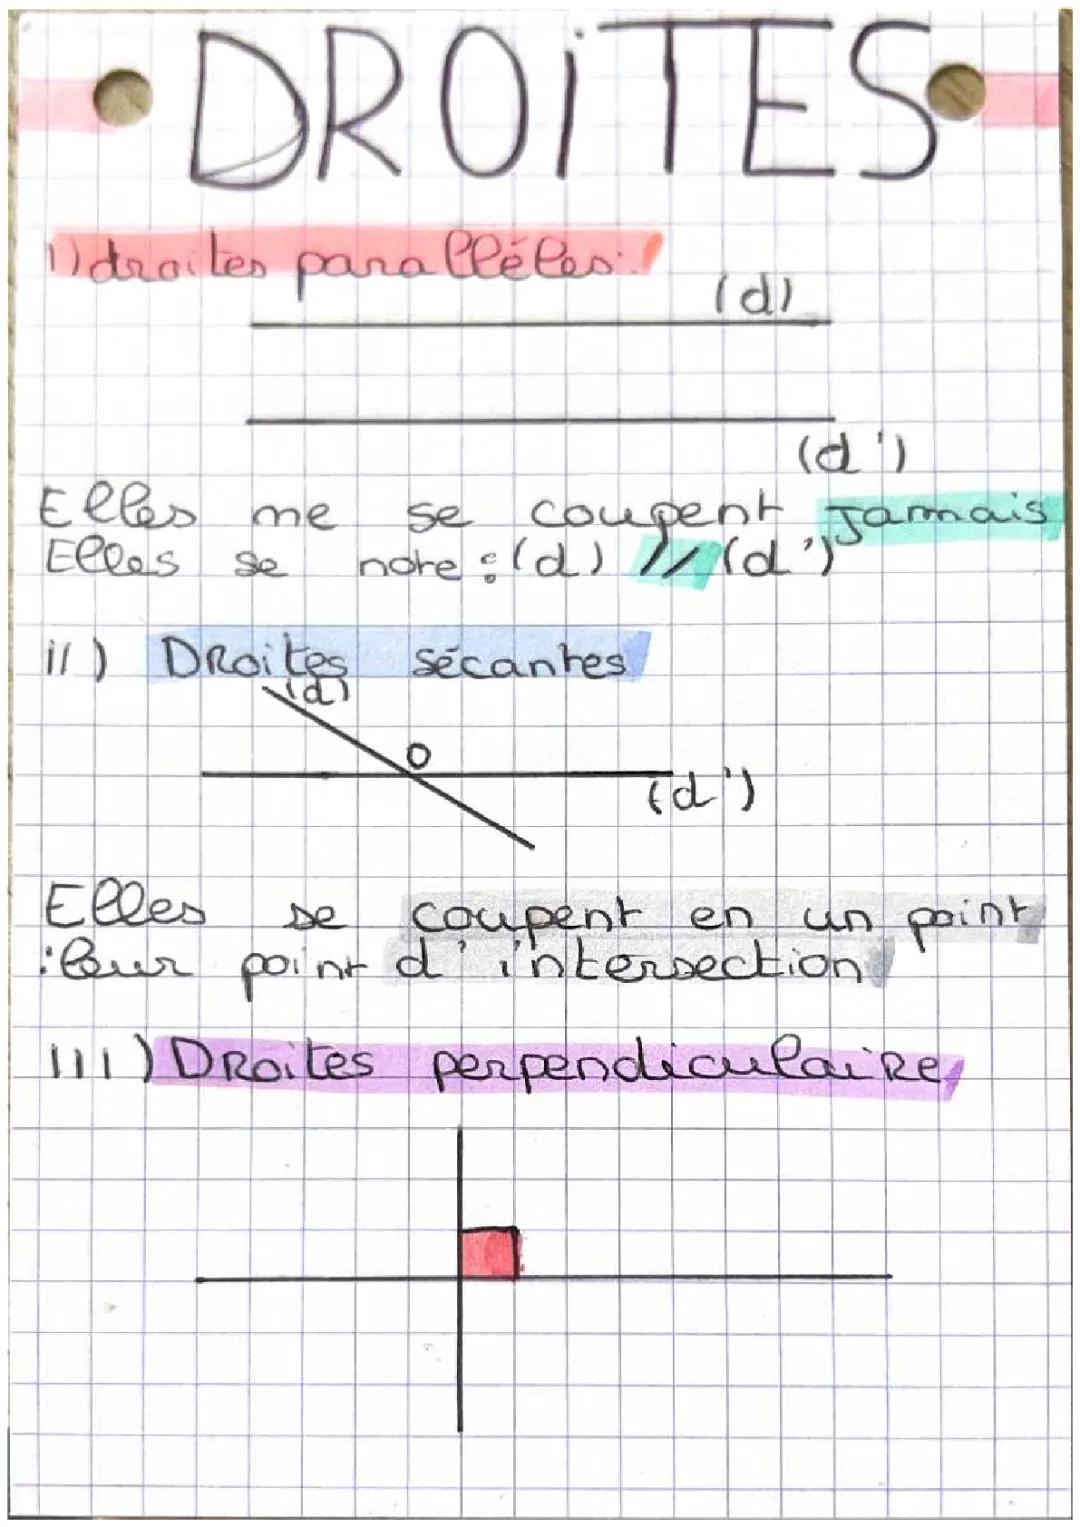 DROiTES
I) droites paralléles:
(d)
(d')
Elles ne se coupent Jamais
Elles se note : (d) // (d')
II) DRoites sécantes
(d)
O
(d')
Elles se coupent en un point
: leur point d'intersection
III) DRoites perpendiculaiRe